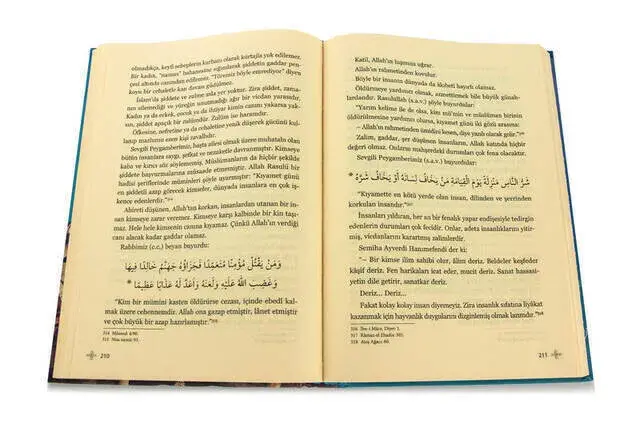 olmadıkça, keyfî sebeplerin kurbanı olarak kürtajla yok edilemez.
Bir kadın, "namus" bahanesine sığınılarak şiddetin gaddar pen-
çesi altında canından edilemez. "Töremiz böyle emrediyor" diyen
koyu bir cehaletle kan davası güdülmez.
İslam'da şiddete ve zulme asla yer yoktur. Zira şiddet, zaman-
sın affetmediği ve yüreğin unutmadığı ağır bir vicdan yarasıdır.
Kadın ya da erkek, çocuk ya da ihtiyar kimin canını yakarsa yak-
sın, şiddet apaçık bir zalimliktir. Zulüm ise haramdır.
Öfkesine, nefretine ya da cehaletine yenik düşerek gücünü kul-
lanıp masumu ezen kişi zavallıdır.
Sevgili Peygamberimiz, başta ailesi olmak üzere muhatabı olan
bütün insanlara saygı, şefkat ve nezaketle davranmıştır. Kimseye
kaba ve kırıcı söz söylememiş, Müslümanların da hiçbir şekilde
şiddete başvurmalarına müsaade etmemiştir. Allah Rasulü bir
hadisi şeriflerinde müminleri şöyle uyarmıştır: "Kıyamet günü
en şiddetli azap görecek kimseler, dünyada insanlara en çok iş-
kence edenlerdir."
Ahireti düşünen, Allah'tan korkan, insanlardan utanan bir in-
san kimseye zarar veremez. Kimseye karşı kalbinde bir kin taşı-
maz. Hele hele kimsenin canına kıyamaz. Çünkü Allah'ın verdiği
canı alacak kadar gaddar olamaz.
Rabbimiz (c.c.) beyan buyurdu:
وَمَنْ يَقْتُلْ مُؤْمِنًا مُتَعَمِّدًا فَجَزَاؤُهُ جَهَنَّمُ خَالِدًا فِيهَا
وَغَضِبَ اللَّهُ عَلَيْهِ وَلَعَنَهُ وَأَعَدَّ لَهُ عَذَابًا عَظِيمًا *
"Kim bir mümini kasten öldürürse cezası, içinde ebedî kal-
mak üzere cehennemdir. Allah ona gazap etmiştir, lânet etmiştir
ve çok büyük bir azap hazırlamıştır."³¹⁵
314 Müsned 4/90.
315 Nisa suresi 93.
210
Katil, Allah'ın lanetine uğrar.
Allah'ın rahmetinden kovulur.
Böyle bir insanın dünyada da akıbeti hayırlı olamaz.
Öldürmeye yardımcı olmak, azmettirmek bile büyük günah-
lardandır. Rasulullah (s.a.v.) şöyle buyurdular:
"Yarım kelime ile de olsa, kim mü'min ve müslüman birinin
öldürülmesine yardımcı olursa, kıyamet günü iki gözü arasına:
– Allah'ın rahmetinden ümidini kesen, diye yazılı olarak gelir."³¹⁶
Zalim, gaddar, şer düşünen insanların, Allah katında hiçbir
değeri olmaz. Onların mahşerdeki durumları çok fena olacaktır.
Sevgili Peygamberimiz (s.a.v.) buyurdular:
شَرُّ النَّاسِ مَنْزِلَةً يَوْمَ الْقِيَامَةِ مَنْ يَخَافُ لِسَانَهُ أَوْ يَخَافُ شَرَّهُ *
"Kıyamette en kötü yerde olan insan, dilinden ve şerrinden
korkulan insandır."³¹⁷
İnsanları yıldıran, her an bir fenalık yapar endişesiyle tedirgin
edenlerin durumları çok fecidir. Onlar, adeta insanlıklarını yitir-
miş, vicdanlarını karartmış zalimlerdir.
Semiha Ayverdi Hanımefendi der ki:
"– Bir kimse ilim sahibi olur, âlim deriz. Beldeler keşfeder
kâşif deriz. Fen harikaları icat eder, mucit deriz. Sanat hassasi-
yetin dile getirir, sanatkar deriz.
Deriz... Deriz...
Fakat kolay kolay insan diyemeyiz. Zira insanlık sıfatına liyâkat
kazanmak için hayvanlık duygularını dizginlemiş olmak lazımdır."³¹⁸
316 İbn-i Mâce, Diyet 1.
317 Râmuz-el Ehadis 302.
318 Ateş Ağacı 66.
211